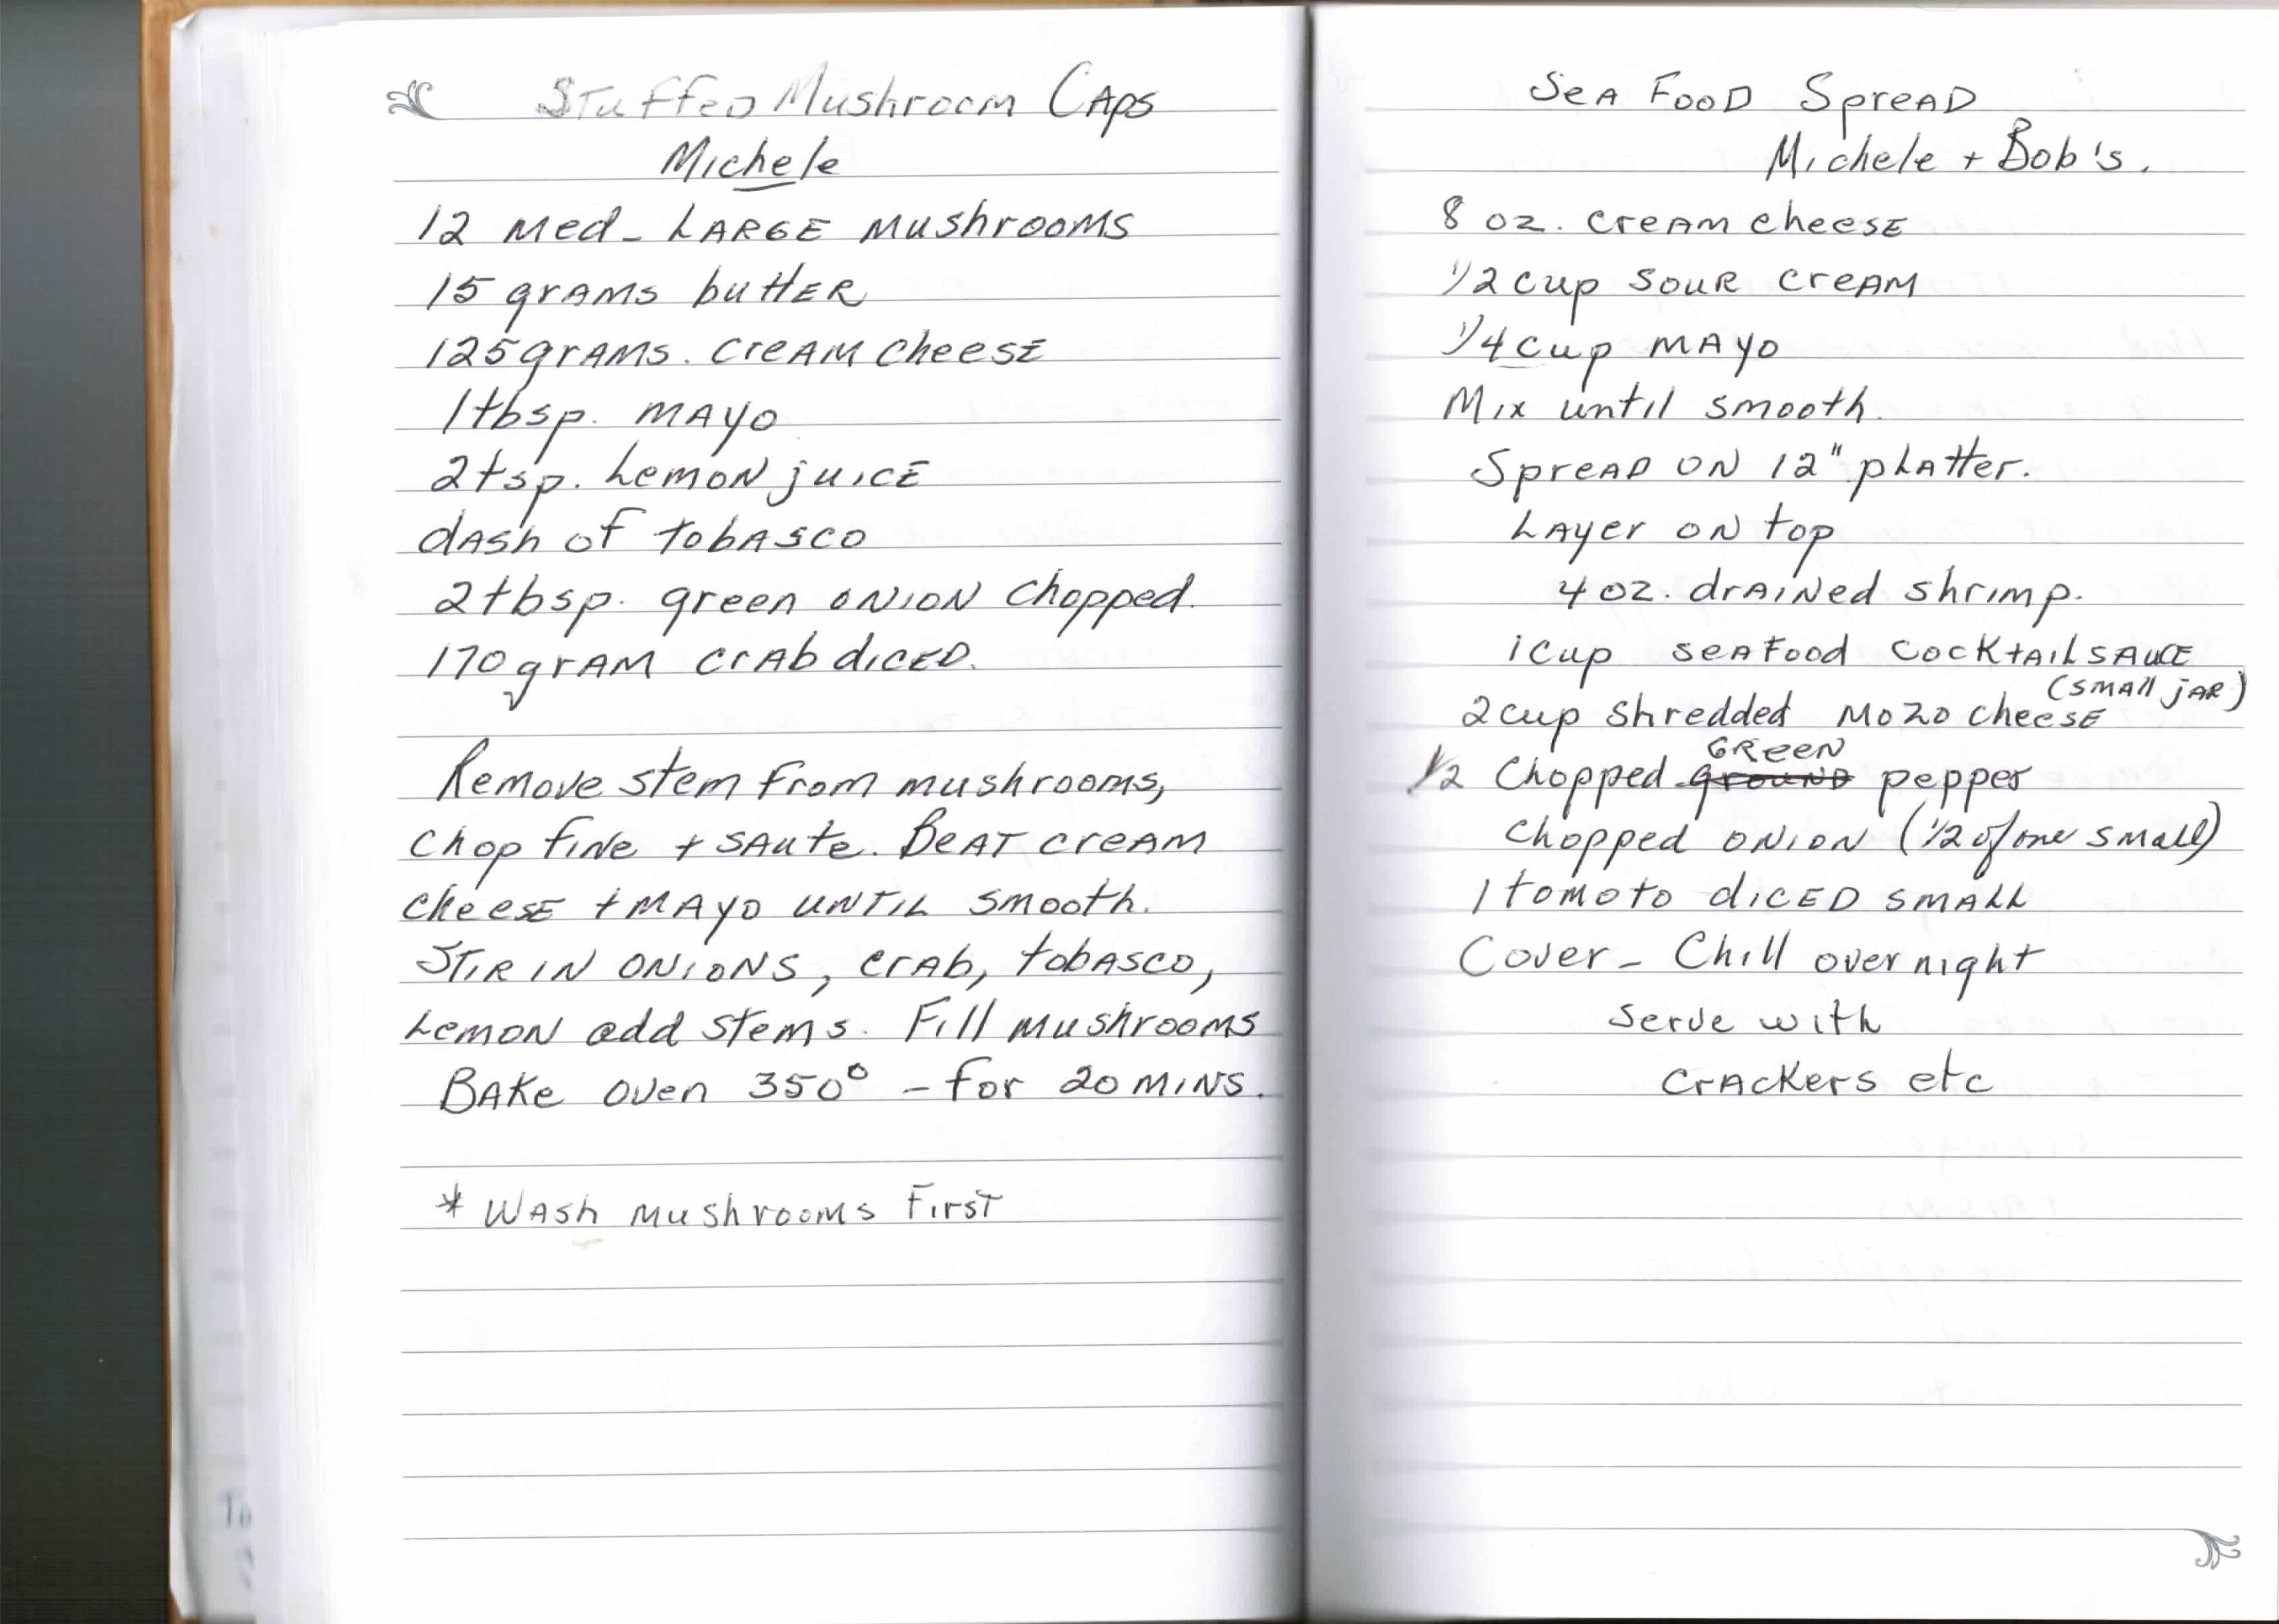 Stuffed Mushroom Caps
Michele
12 med - LARGE mushrooms
15 grams butter
125 grams. cream cheese
1 tbsp. mayo
2 tsp. Lemon juice
dash of tobasco
2 tbsp. green onion chopped.
170 gram crab diced.
Remove stem from mushrooms,
chop fine + saute. Beat cream
cheese + mayo until smooth.
Stir in onions, crab, tobasco,
Lemon add stems. Fill mushrooms
Bake oven 350° - for 20 mins.
* Wash mushrooms First
Sea Food Spread
Michele + Bob's.
8 oz. cream cheese
1/2 cup sour cream
1/4 cup mayo
Mix until smooth.
Spread on 12" platter.
Layer on top
4 oz. drained shrimp.
1 cup seafood cocktail sauce
(small jar)
2 cup shredded mozo cheese
1/2 chopped ground GREEN pepper
chopped onion (1/2 of one small)
1 tomoto diced small
Cover - Chill overnight
serve with
crackers etc